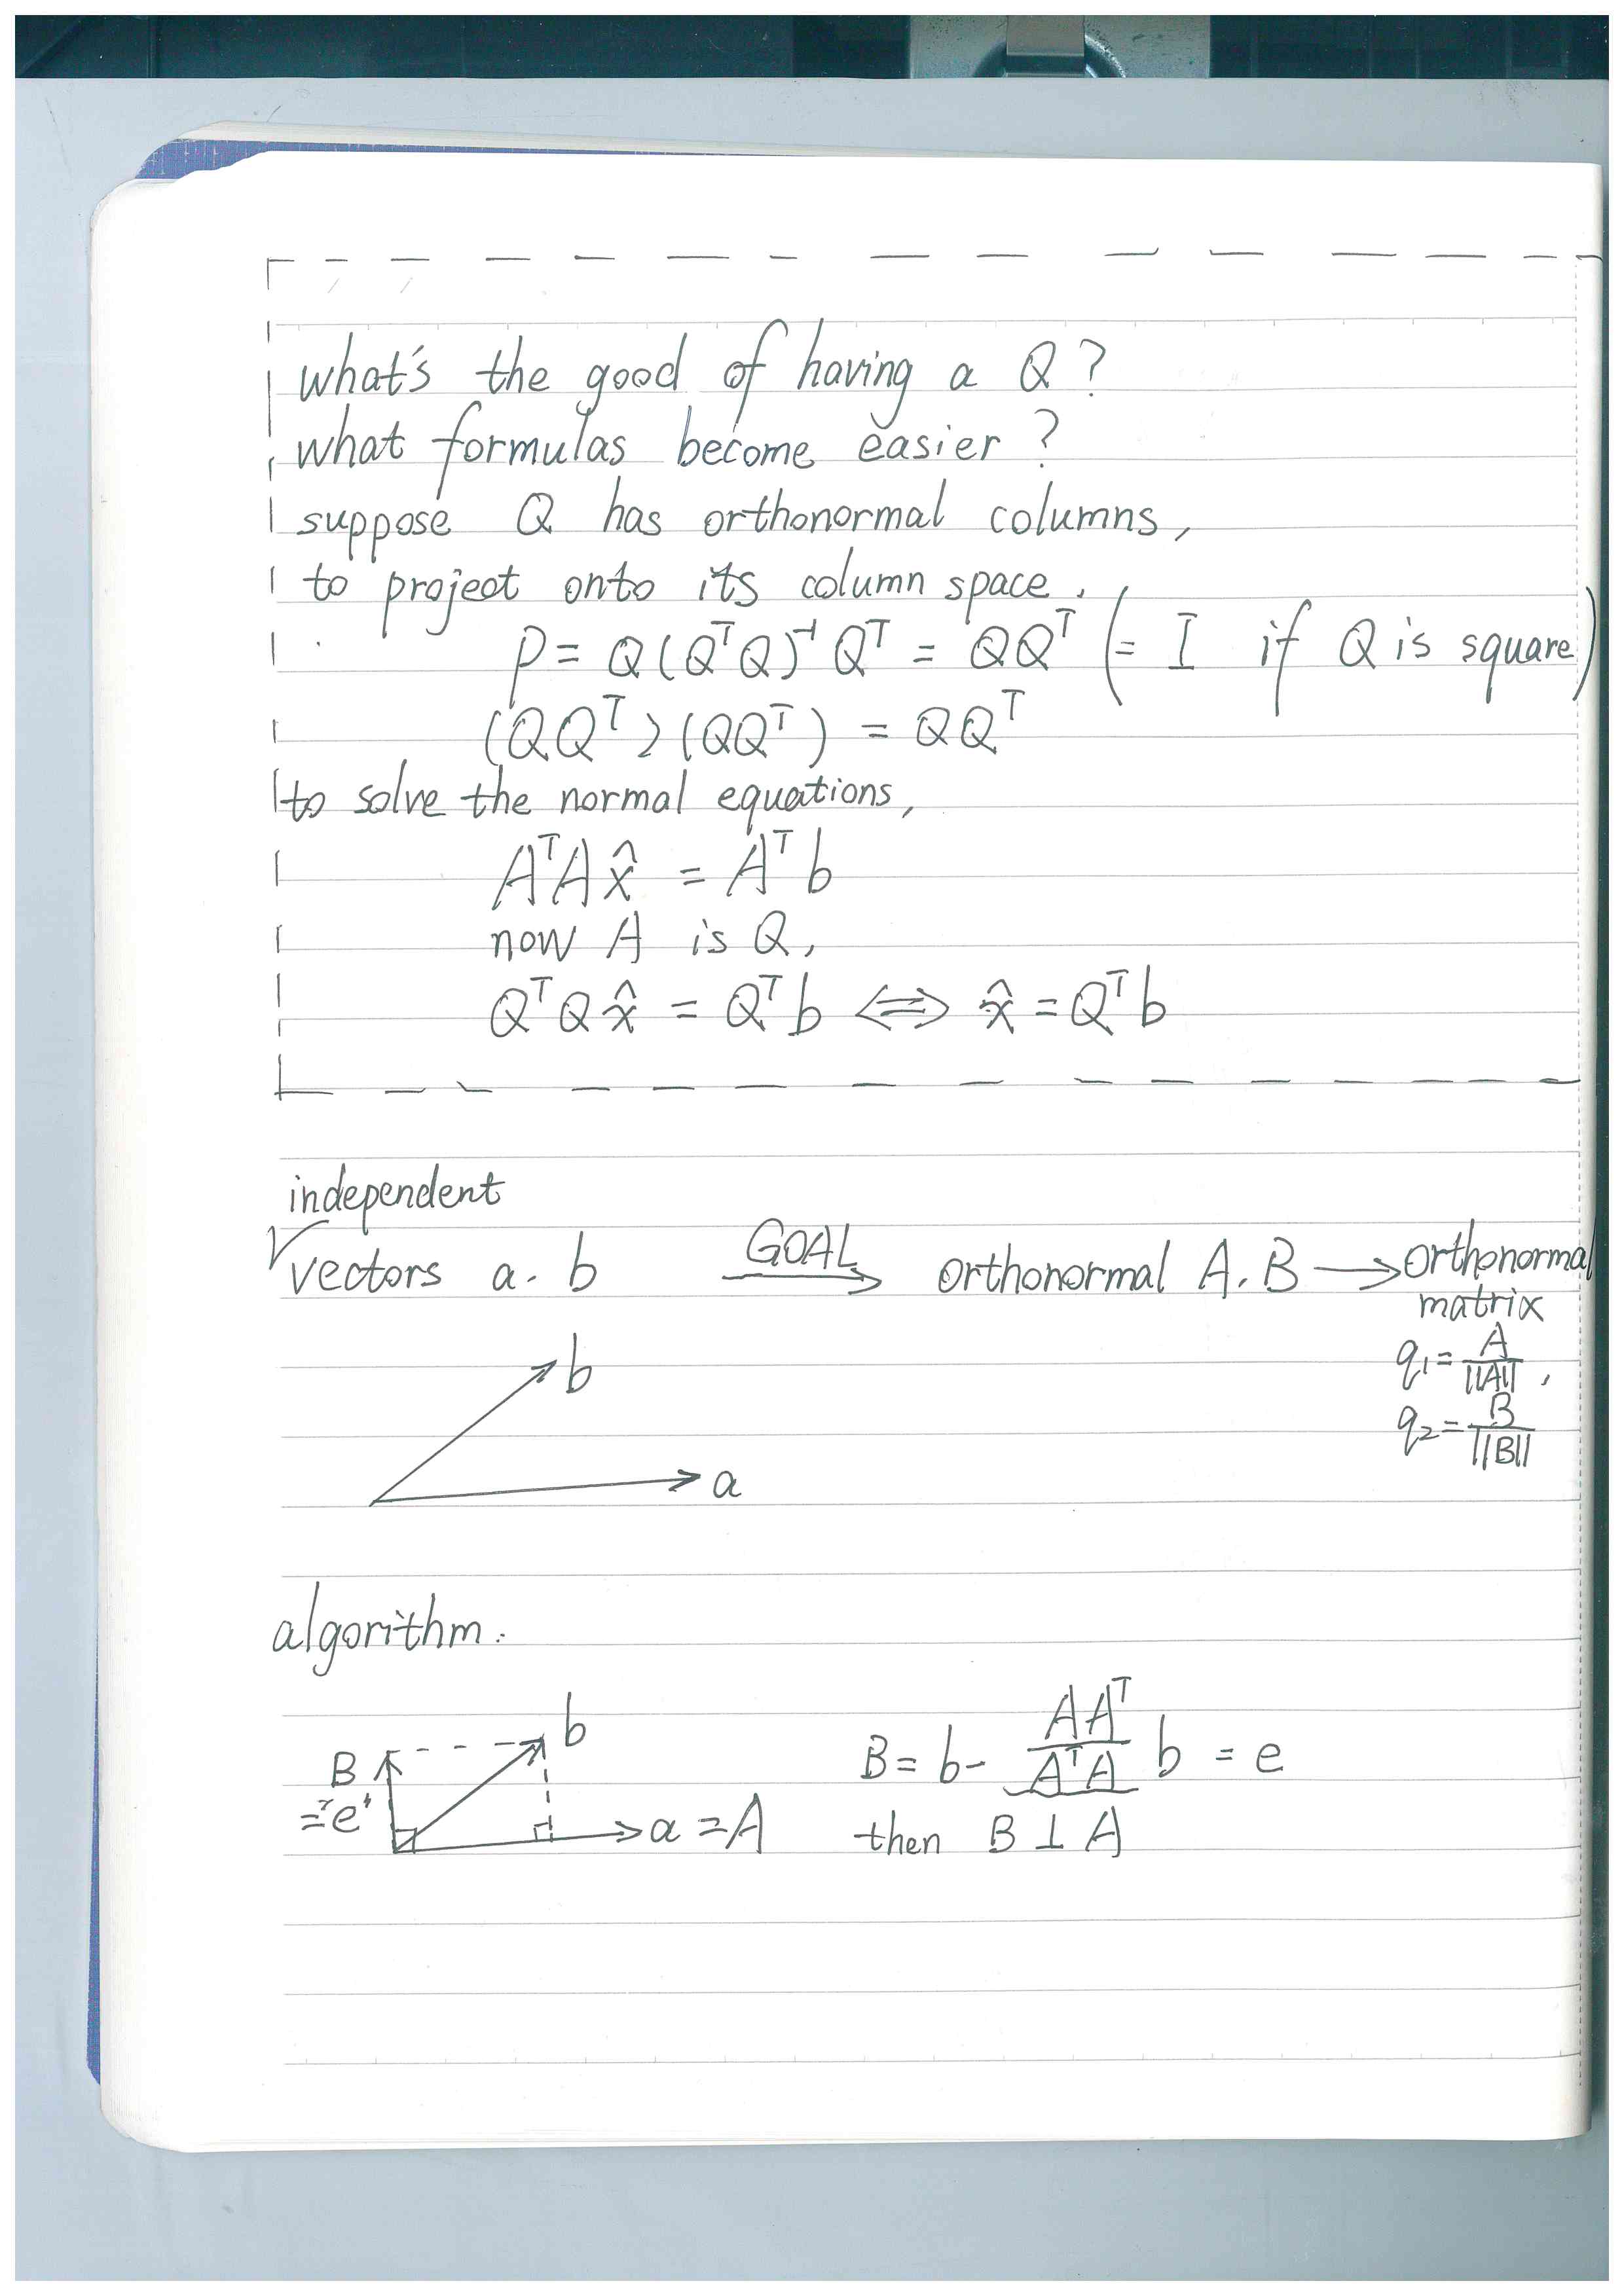 what's the good of having a Q?
what formulas become easier?
suppose Q has orthonormal columns,
to project onto its column space.
P = Q(QᵀQ)⁻¹Qᵀ = QQᵀ (= I if Q is square)
(QQᵀ)(QQᵀ) = QQᵀ
to solve the normal equations,
AᵀA x̂ = Aᵀb
now A is Q,
QᵀQ x̂ = Qᵀb ⟺ x̂ = Qᵀb
independent
vectors a. b GOAL orthonormal A. B → orthonormal
matrix
q₁ = A/||A|| ,
q₂ = B/||B||
b
a
algorithm.
b
B
="e"
a = A
B = b - AAᵀ/AᵀA b = e
then B ⊥ A